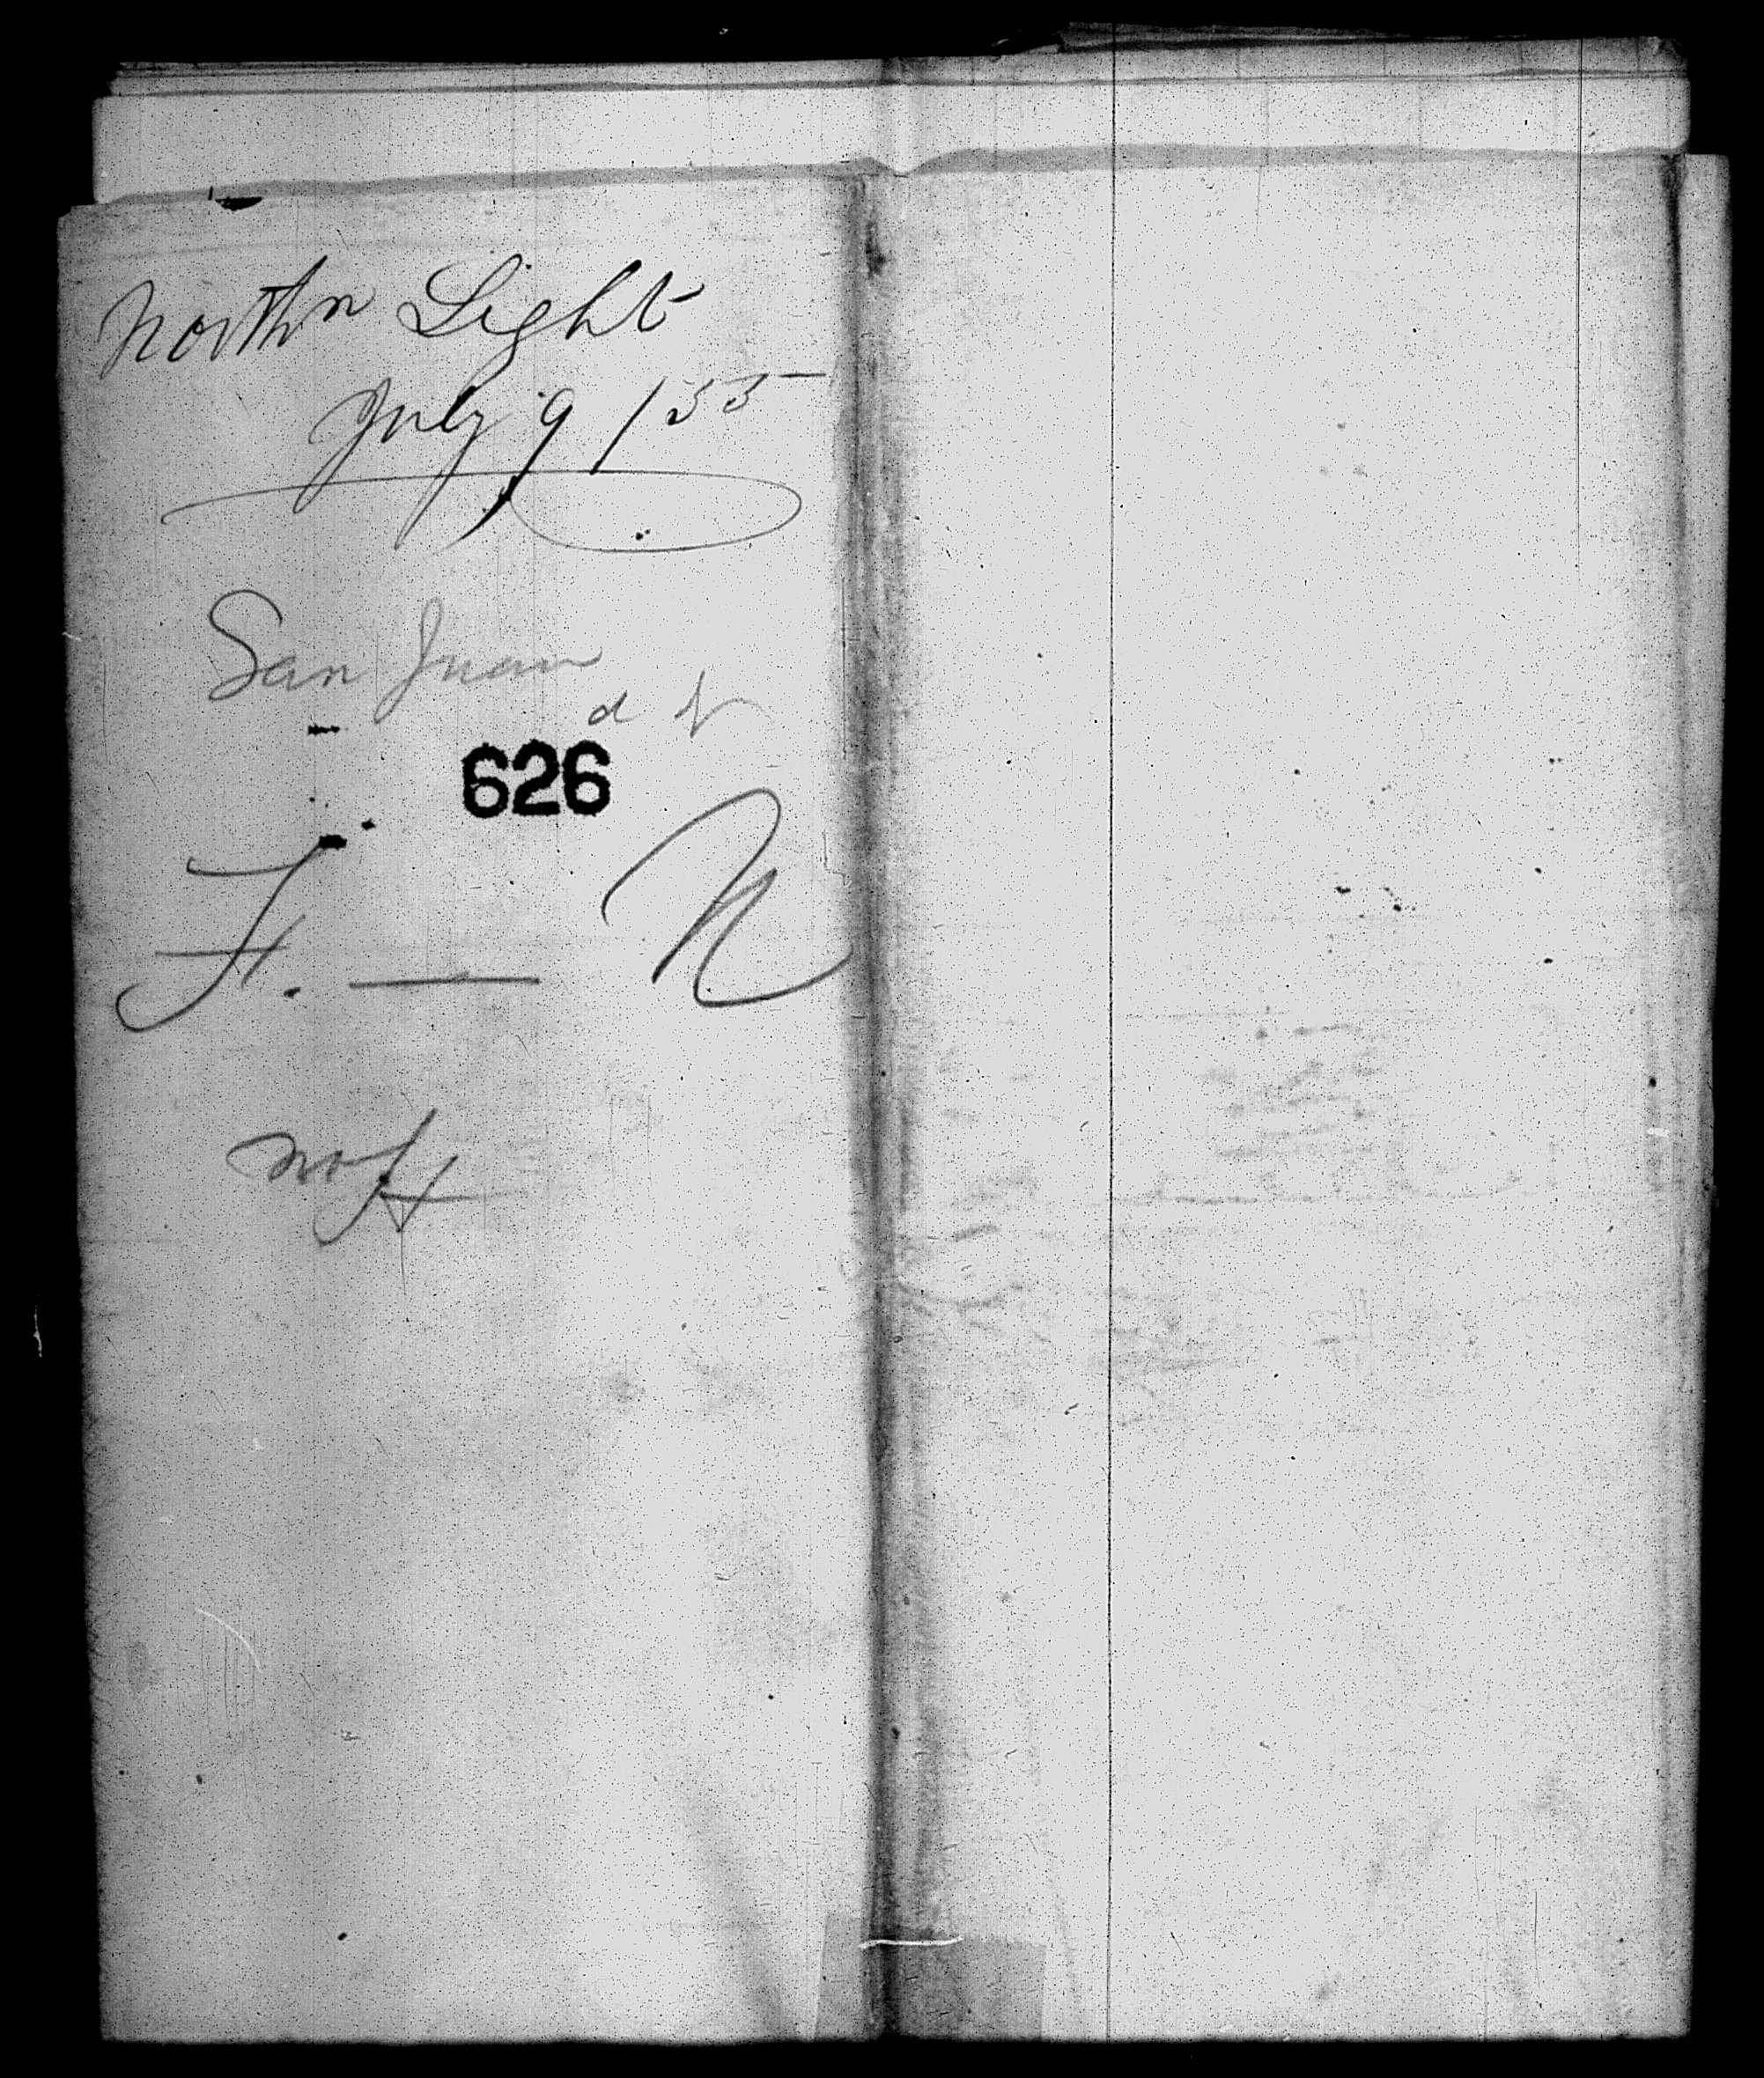 Northn Light
July 9 / 55
San Juan
d N
626
F. — N